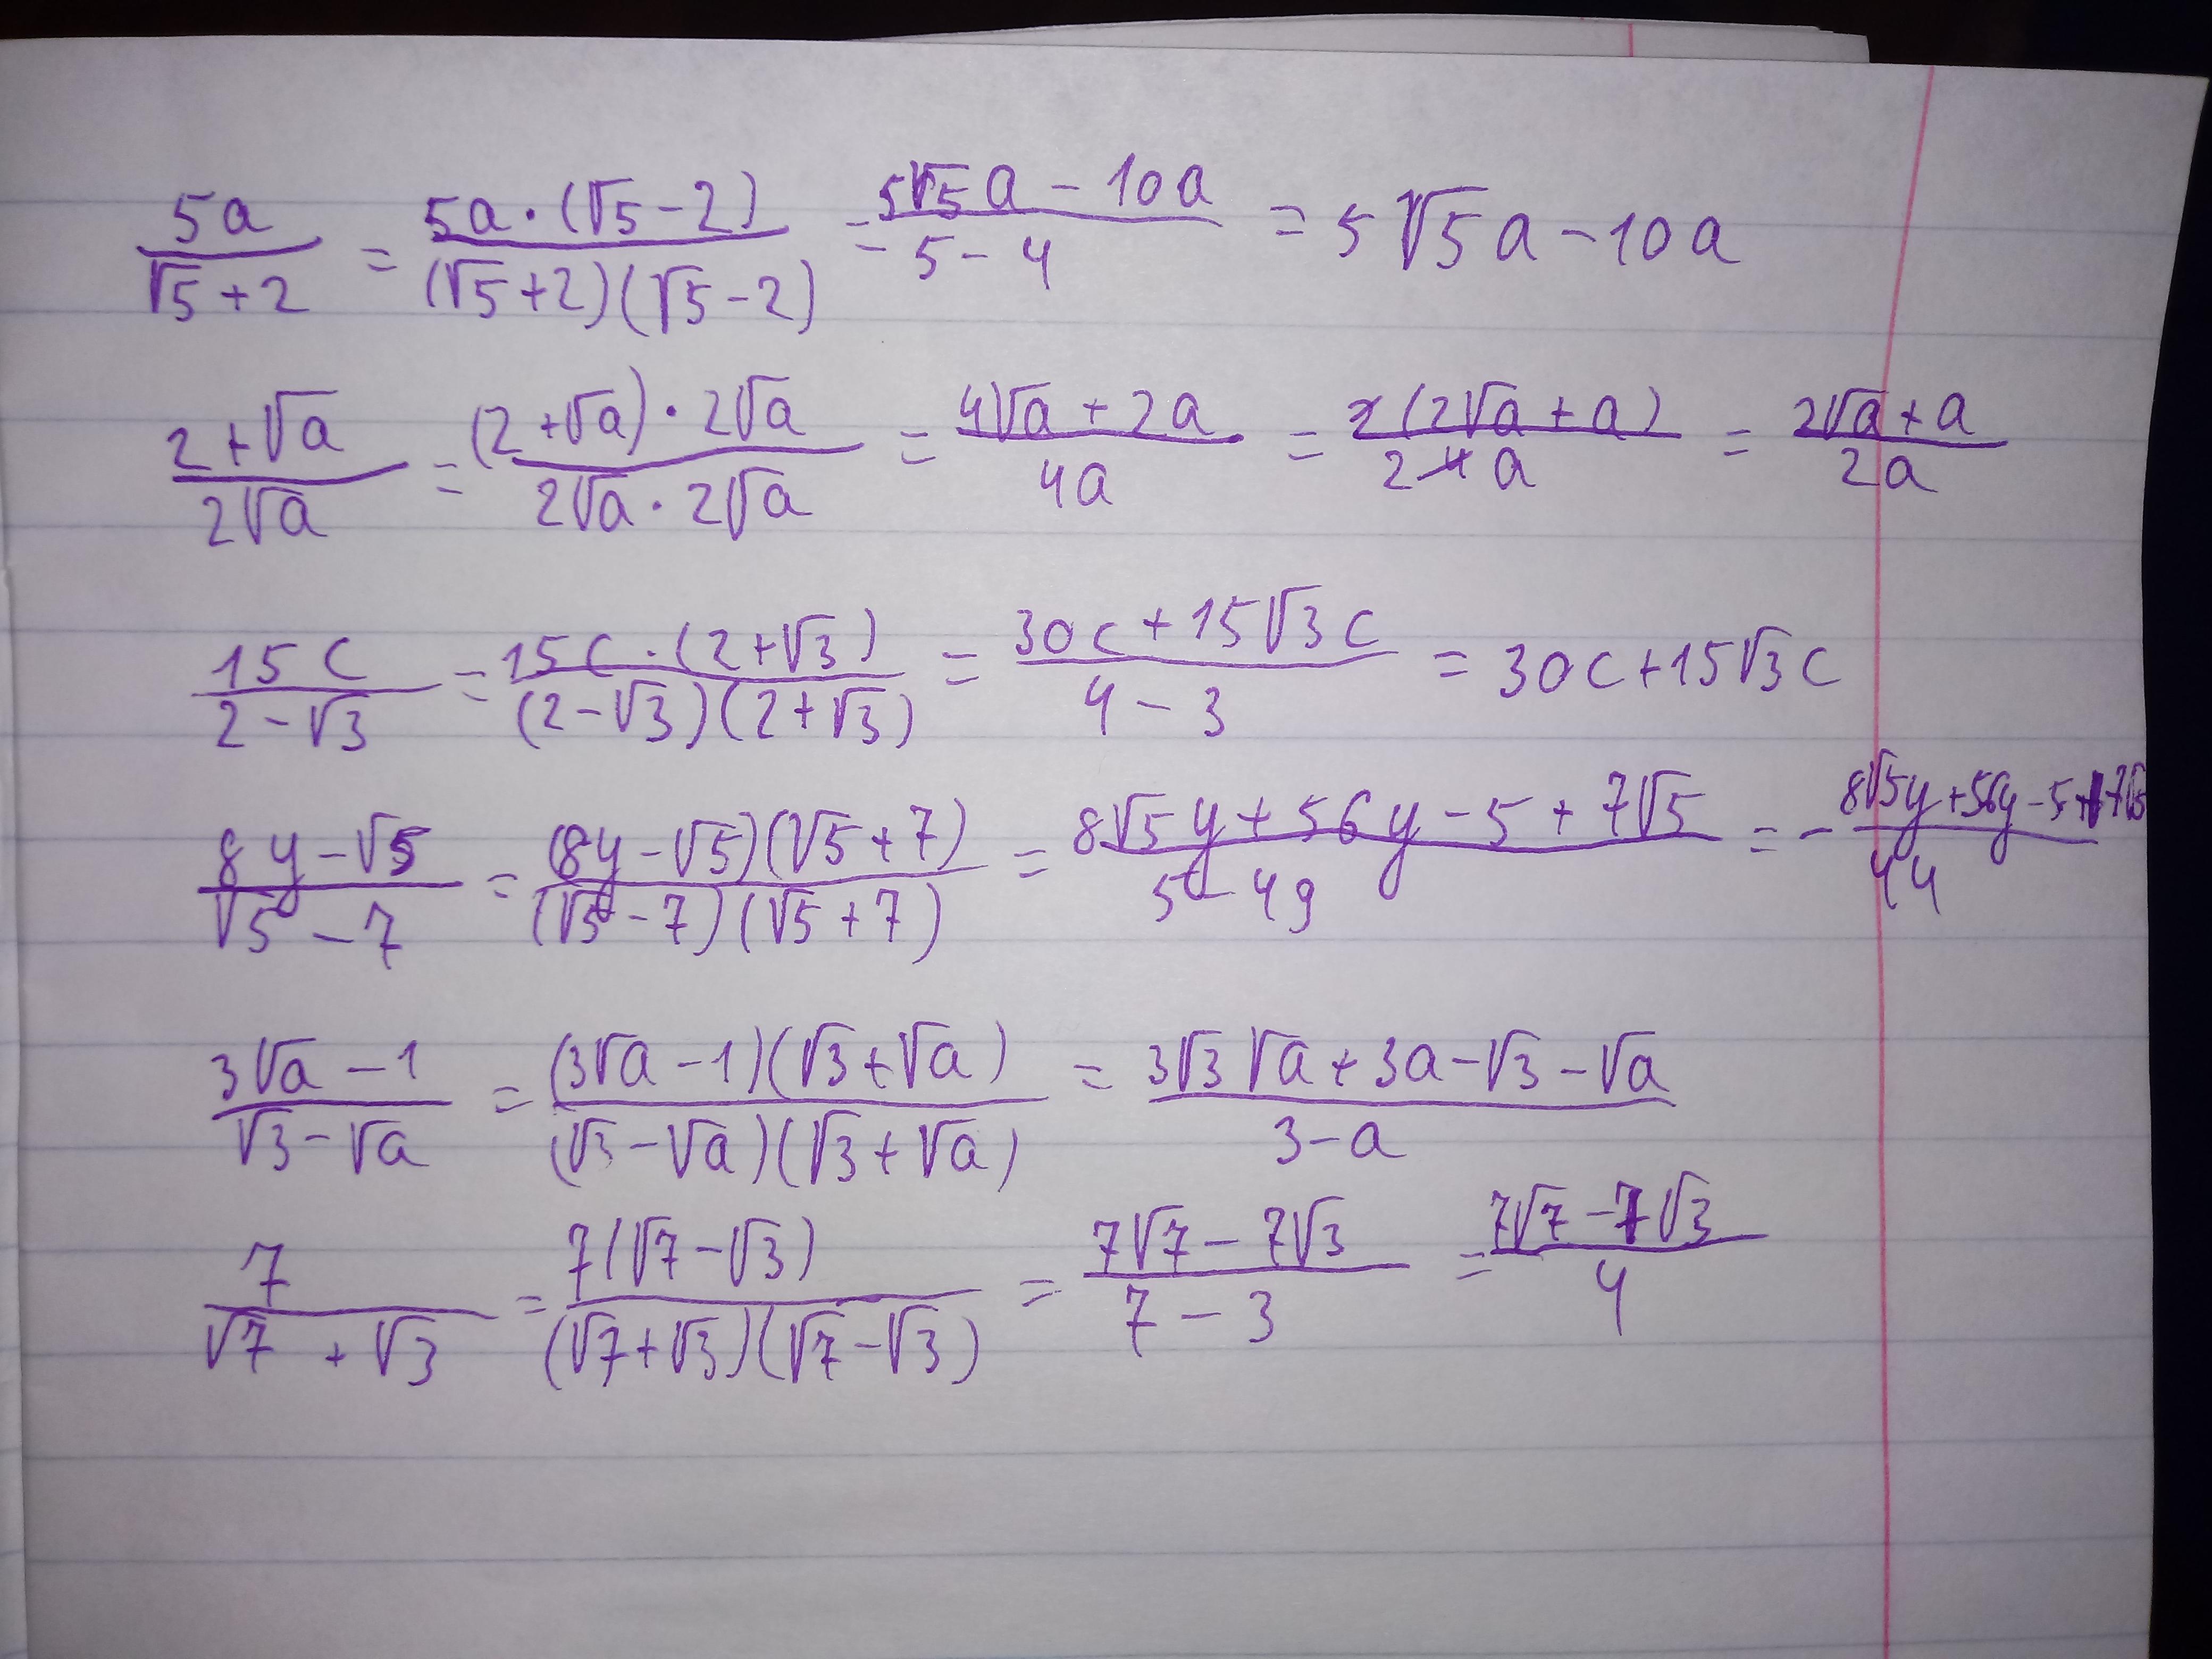 5a/(√5+2) = 5a·(√5-2)/((√5+2)(√5-2)) = (5√5a-10a)/(5-4) = 5√5a-10a
(2+√a)/(2√a) = (2+√a)·2√a/(2√a·2√a) = (4√a+2a)/(4a) = 2(2√a+a)/(2 4a) = (2√a+a)/(2a)
15c/(2-√3) = 15c·(2+√3)/((2-√3)(2+√3)) = (30c+15√3c)/(4-3) = 30c+15√3c
(8y-√5)/(√5-7) = (8y-√5)(√5+7)/((√5-7)(√5+7)) = (8√5y+56y-5+7√5)/(5-49) = -(8√5y+56y-5+7√5)/44
(3√a-1)/(√3-√a) = (3√a-1)(√3+√a)/((√3-√a)(√3+√a)) = (3√3√a+3a-√3-√a)/(3-a)
7/(√7+√3) = 7(√7-√3)/((√7+√3)(√7-√3)) = (7√7-7√3)/(7-3) = (7√7-7√3)/4